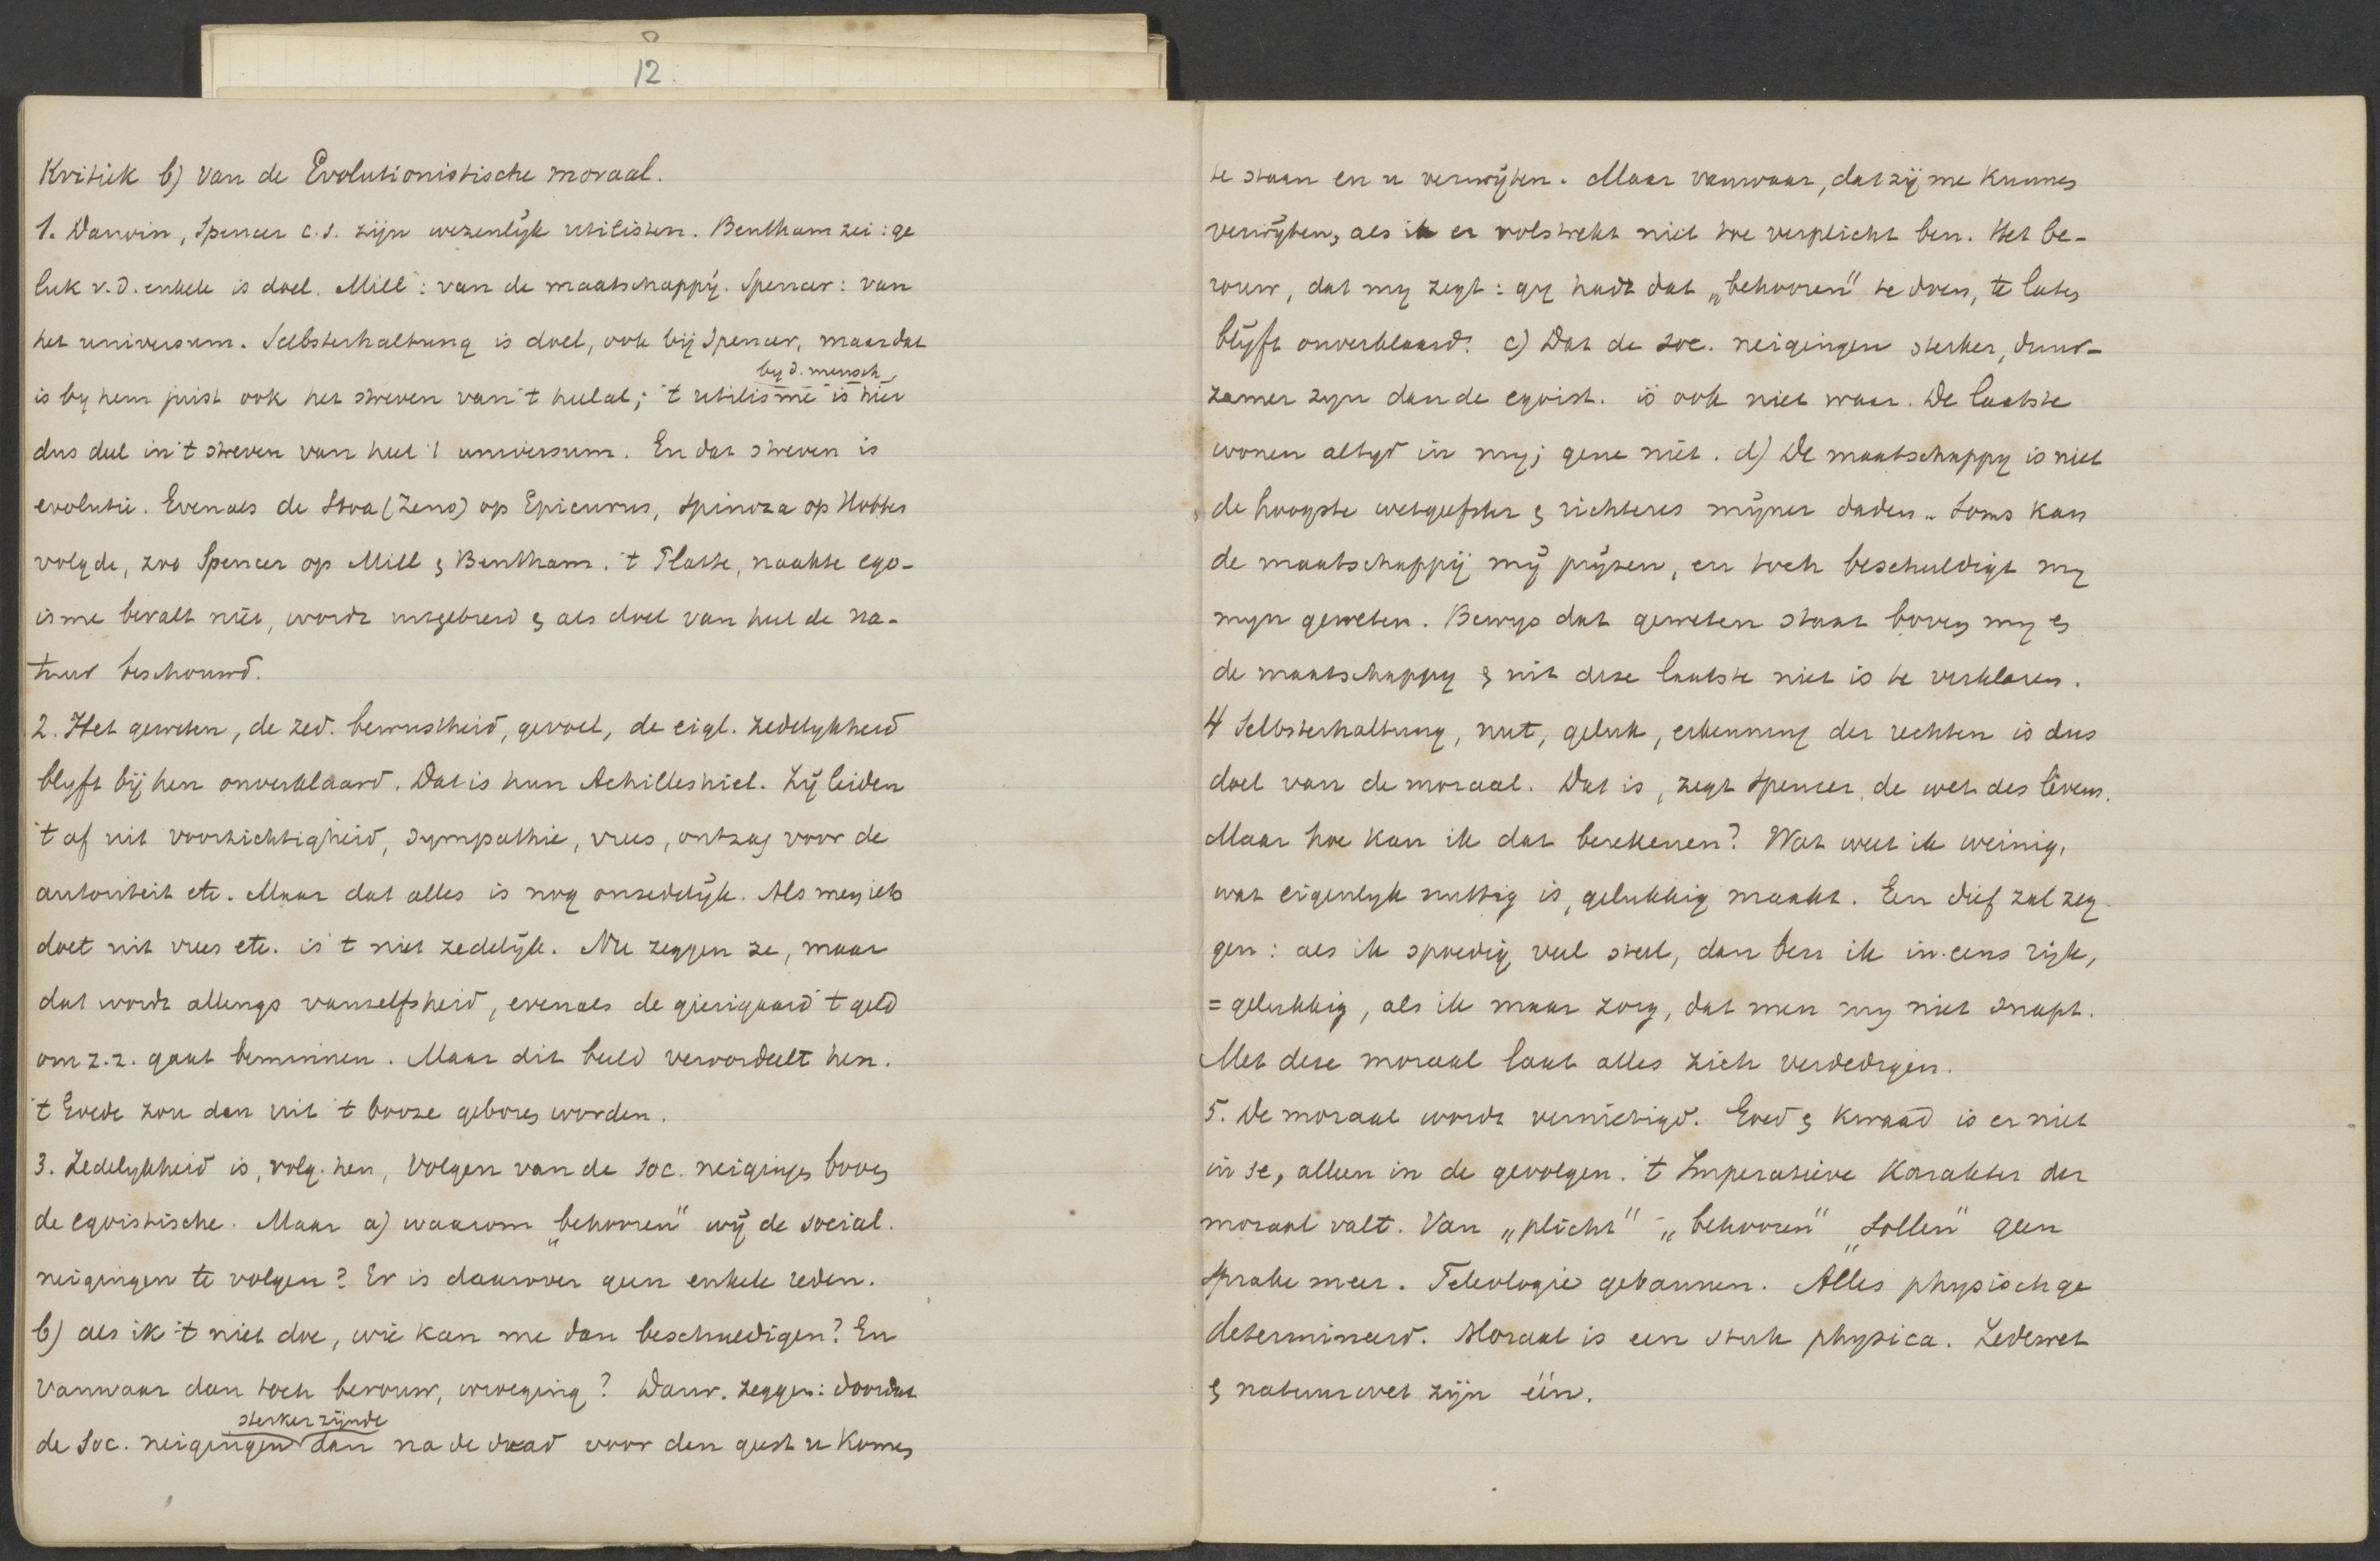 12.
Kritiek b) van de Evolutionistische moraal.
1. Darwin, Spencer c.s. zijn wezenlijk utilisten. Bentham zei: ge
luk v.d. enkele is doel. Mill: van de maatschappij. Spencer: van
het universum. Selbsterhaltung is doel, ook bij Spencer, maar dat
by d. mensch
is by hem juist ook het streven van 't heelal; 't utilisme is hier
dus deel in 't streven van heel 't universum. En dat streven is
evolutie. Evenals de Stoa (Zeno) op Epicurus, Spinoza op Hobbes
volgde, zoo Spencer op Mill & Bentham. 't Platte, naakte ego-
isme bevalt niet, wordt uitgebreid & als doel van heel de na-
tuur beschouwd.
2. Het geweten, de zed. bewustheid, gevoel, de eigl. zedelykheid
blyft bij hen onverklaard. Dat is hun Achilleshiel. Zij leiden
't af uit voorzichtigheid, sympathie, vrees, ontzag voor de
autoriteit etc. Maar dat alles is nog onzedelijk. Als men iets
doet uit vrees etc. is 't niet zedelijk. Nu zeggen ze, maar
dat wordt allengs vanzelfsheid, evenals de gierigaard 't geld
om z.z. gaat beminnen. Maar dit beeld veroordeelt hen.
't Goede zou dan uit 't booze geboren worden.
3. Zedelykheid is, volg. hen, volgen van de soc. neigingen boven
de egoistische. Maar a) waarom „behooren" wij de social.
neigingen te volgen? Er is daarvoor geen enkele reden.
b) als ik 't niet doe, wie kan me dan beschuldigen? En
vanwaar dan toch berouw, wroeging? Darw. zeggen: doordat
sterker zijnde
de soc. neigingen dan na de daad voor den geest u komen
te staan en u verwijten. Maar vanwaar, dat zij me kunnen
verwijten, als ik er volstrekt niet toe verplicht ben. Het be-
rouw, dat my zegt: gy hadt dat „behooren" te doen, te laten
blijft onverklaard. c) Dat de soc. neigingen sterker, duur-
zamer zyn dan de egoist. is ook niet waar. De laatste
wonen altyd in my; gene niet. d) De maatschappy is niet
de hoogste wetgeefster & richteres mijner daden. Soms kan
de maatschappij mij prijzen, en toch beschuldigt my
myn geweten. Bewys dat geweten staat boven my &
de maatschappy & uit deze laatste niet is te verklaren.
4 Selbsterhaltung, nut, geluk, erkenning der rechten is dus
doel van de moraal. Dat is, zegt Spencer, de wet des levens.
Maar hoe kan ik dat berekenen? Wat weet ik weinig,
wat eigenlyk nuttig is, gelukkig maakt. Een dief zal zeg
gen: als ik spoedig veel steel, dan ben ik in eens rijk,
= gelukkig, als ik maar zorg, dat men my niet snapt.
Met deze moraal laat alles zich verdedigen.
5. De moraal wordt vernietigd. Goed & kwaad is er niet
in se, alleen in de gevolgen. 't Imperatieve karakter der
moraal valt. Van „plicht" „behooren" „Sollen" geen
sprake meer. Teleologie gebannen. Alles physisch ge
determineerd. Moraal is een stuk physica. Zedewet
& natuurwet zijn één.